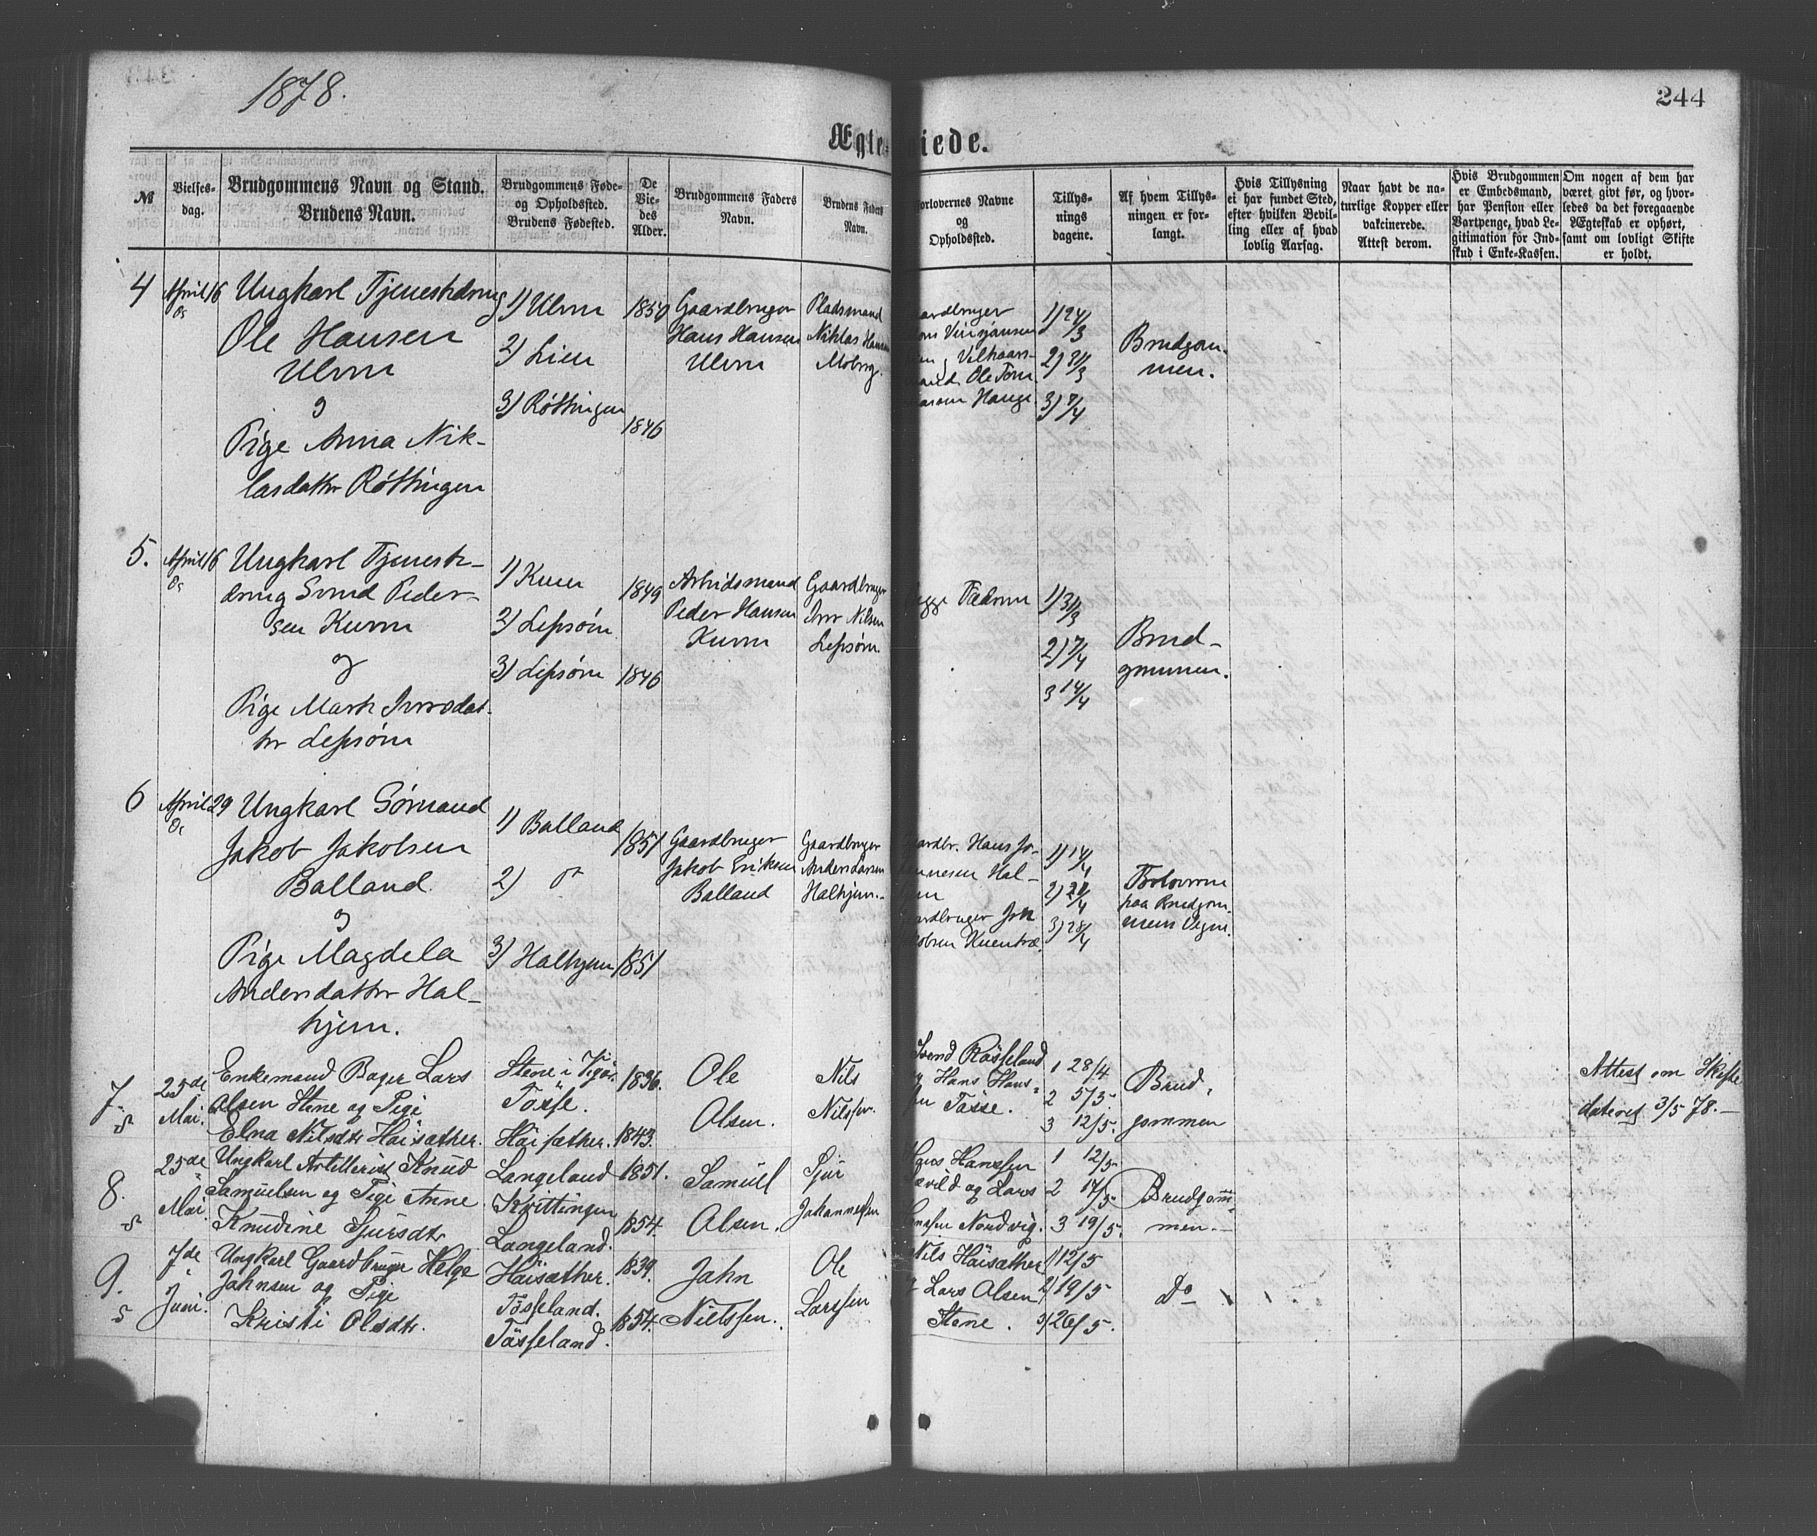 1878.
244
Ægte
iede.
№
Vielses-
dag.
Brudgommens Navn og Stand.
Brudens Navn.
Brudgommens Føde-
og Opholdssted.
Brudens Fødested.
De
Vie-
des
Alder.
Brudgommens Faders
Navn.
Brudens Faders
Navn.
Forlovernes Navne
og
Opholdssted.
Tillys-
nings
dagene.
Af hvem Tillys-
ningen er for-
langt.
Hvis Tillysning
ei har fundet Sted,
efter hvilken Bevil-
ling eller af hvad
lovlig Aarsag.
Naar havt de na-
turlige Kopper eller
vakcinerede.
Attest derom.
Hvis Brudgommen
er Embedsmand,
har Pension eller
Vartpenge, hvad Le-
gitimation for Ind-
skud i Enke-Kassen.
Om nogen af dem har
været givt før, og hvor-
ledes da det foregaaende
Ægteskab er ophørt,
samt om lovligt Skifte
er holdt.
4
April 16
Os
Ungkarl Tjenestedreng
Ole Hansen
Ulven
og
Pige Anna Nik-
lasdatter Røttingen
1) Ulven
2) Lien
3) Røttingen
1850
1846
Gaardbruger
Hans Hansen
Ulven
Pladsmand
Niklas Hansen
Moberg.
aardbruger
Ole
Hauge
1) 24/3
2) 31/3
3) 7/4
Brudgom-
men.
5.
April 16
Os
Ungkarl Tjeneste-
dreng Svend Peder-
sen Kuven
og
Pige Marte Iversdat-
ter Lepsøen
1) Kuven
2) Lepsøen
3) Lepsøen
1849
1846
Arbeidsmand
Peder Hansen
Kuven
Gaardbruger
Iver Nilsen
Lepsøen
egge Fædrene
1) 31/3
2) 7/4
3 14/4
Brud-
gommen.
6
April 29
Os
Ungkarl Sømand
Jakob Jakobsen
Balland
og
Pige Magdela
Andersdatter Hal-
hjem.
1) Balland
2) do
3) Halhjem
1851
1851
Gaardbruger
Jakob Eriksen
Balland
Gaardbruger
Anders Larsen
Halhjem.
aardbr. Hans Jo-
annesen Hal-
jem
ardbruger Joh
kobsen Kuentræ
1) 14/4
2) 21/4
3) 28/4
Forloverne
paa Brudgom-
mens Vegne.
7.
25de
Mai.
Enkemand Bager Lars
Olsen Stene og Pige
Elna Nilsdtr Haisæther.
Stene i
Tøsse.
Haisæther.
1836.
1843.
Ole
Olsen.
Nils
Nilssen.
Svend Røsseland
og Hans Hans-
sen Tøsse.
1 28/4
2 5/5.
3 12/5.
Brud-
gommen
Attest om Skifte
dateret 3/5 78.—
8.
25de
Mai.
Ungkarl Artillerist Knud
Samuelsen og Pige Anne
Knudine Sjursdtr
Langeland
Kvittingen
Langeland.
1851.
1854.
Samuel
Olsen.
Sjur
Johannessen
Hans Hanssen
ævild og Lars
Nordvig.
1 12/5
2 17/5
3 19/5.
Brudgom-
men.—
9.
7de
Juni.
Ungkarl Gaardbruger Helge
Johnsen og Pige
Kristi Olsdtr.
Haisæther.
Tøsseland.
Tøsseland.
1839.
1854.
John
Nielssen.
Ole
Larssen
Nils Haisæther
og Lars Olsen
Stene.
1) 12/5
2) 19/5
3) 26/5.
Do